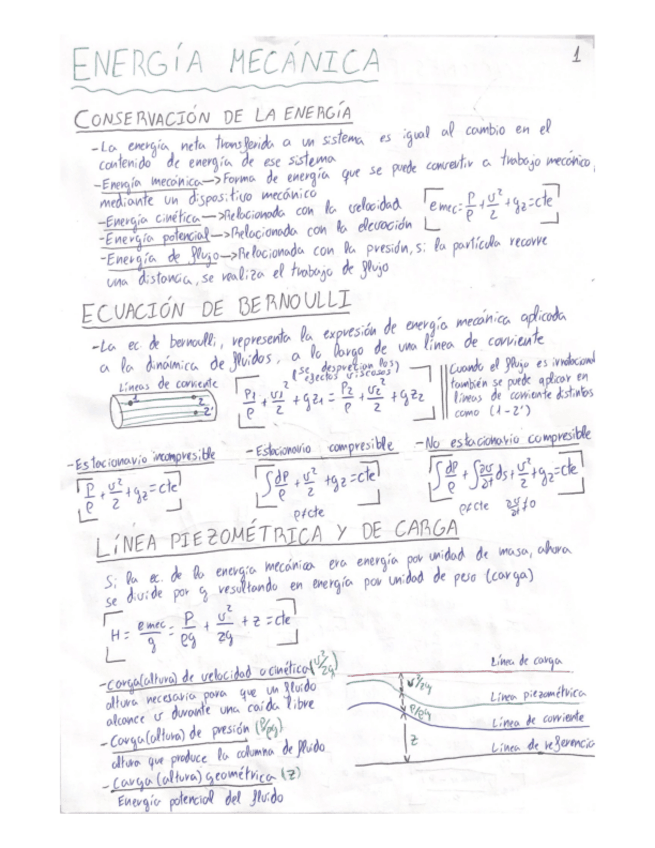 ENERGÍA MECÁNICA
1
CONSERVACIÓN DE LA ENERGÍA
-La energía neta transferida a un sistema es igual al cambio en el
contenido de energía de ese sistema
-Energía mecánica->Forma de energía que se puede convertir a trabajo mecánico,
mediante un dispositivo mecánico
-Energía cinética->Relacionada con la velocidad
[e mec = P/ρ + v²/2 + gz = cte]
-Energía potencial->Relacionada con la elevación
-Energía de flujo->Relacionada con la presión, si la partícula recorre
una distancia, se realiza el trabajo de flujo
ECUACIÓN DE BERNOULLI
-La ec. de bernoulli, representa la expresión de energía mecánica aplicada
a la dinámica de fluidos, a lo largo de una línea de corriente
(se desprecian los
efectos viscosos)
Líneas de corriente
1 2 2'
[P1/ρ + v1²/2 + gz1 = P2/ρ + v2²/2 + gz2]
Cuando el flujo es irrotacional
también se puede aplicar en
líneas de corriente distintas
como (1-2')
-Estacionario incompresible
[P/ρ + v²/2 + gz = cte]
-Estacionario compresible
[∫dP/ρ + v²/2 + gz = cte]
ρ≠cte
-No estacionario compresible
[∫dP/ρ + ∫∂v/∂t ds + v²/2 + gz = cte]
ρ≠cte ∂v/∂t ≠0
LÍNEA PIEZOMÉTRICA Y DE CARGA
Si la ec. de la energía mecánica era energía por unidad de masa, ahora
se divide por g resultando en energía por unidad de peso (carga)
[H = e mec/g = P/ρg + v²/2g + z = cte]
-Carga(altura) de velocidad o cinética (v²/2g)
altura necesaria para que un fluido
alcance v durante una caída libre
-Carga(altura) de presión (P/ρg)
altura que produce la columna de fluido
-Carga (altura) geométrica (z)
Energía potencial del fluido
Línea de carga
v²/2g
Línea piezométrica
P/ρg
Línea de corriente
z
Línea de referencia